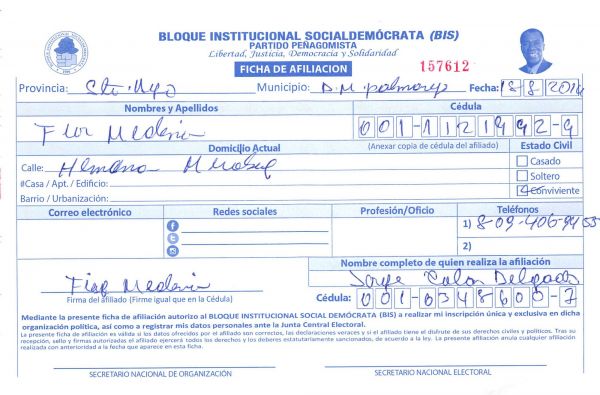 BLOQUE INSTITUCIONAL SOCIALDEMÓCRATA (BIS)
PARTIDO PEÑAGOMISTA
Libertad, Justicia, Democracia y Solidaridad
FICHA DE AFILIACION
157612
Provincia: Sto. Dgo Municipio: D.M. palmarejo Fecha: 18/8/2014
Nombres y Apellidos Cédula
Flor Mederin 001-1121992-9
Domicilio Actual (Anexar copia de cédula del afiliado) Estado Civil
Calle: Hermana Mirabal
Casado
#Casa / Apt. / Edificio: Soltero
Barrio / Urbanización: Conviviente
Correo electrónico Redes sociales Profesión/Oficio Teléfonos
1) 809-406-9455
2)
Nombre completo de quien realiza la afiliación
Flor Mederin Jorge Colon Delgado
Firma del afiliado (Firme igual que en la Cédula) Cédula: 001-0348600-7
Mediante la presente ficha de afiliación autorizo al BLOQUE INSTITUCIONAL SOCIAL DEMÓCRATA (BIS) a realizar mi inscripción única y exclusiva en dicha
organización política, así como a registrar mis datos personales ante la Junta Central Electoral.
La presente ficha de afiliación es valida si los datos ofrecidos por el afiliado son correctos, las declaraciones veraces y si el afiliado tiene el disfrute de sus derechos civiles y políticos. Tras su
recepción, sello y firmas autorizadas el afiliado ejercerá todos los derechos y los deberes estatutariamente sancionados, de acuerdo a la ley. La presente afiliación anula cualquier afiliación
realizada con anterioridad a la fecha que aparece en esta ficha.
SECRETARIO NACIONAL DE ORGANIZACIÓN SECRETARIO NACIONAL ELECTORAL